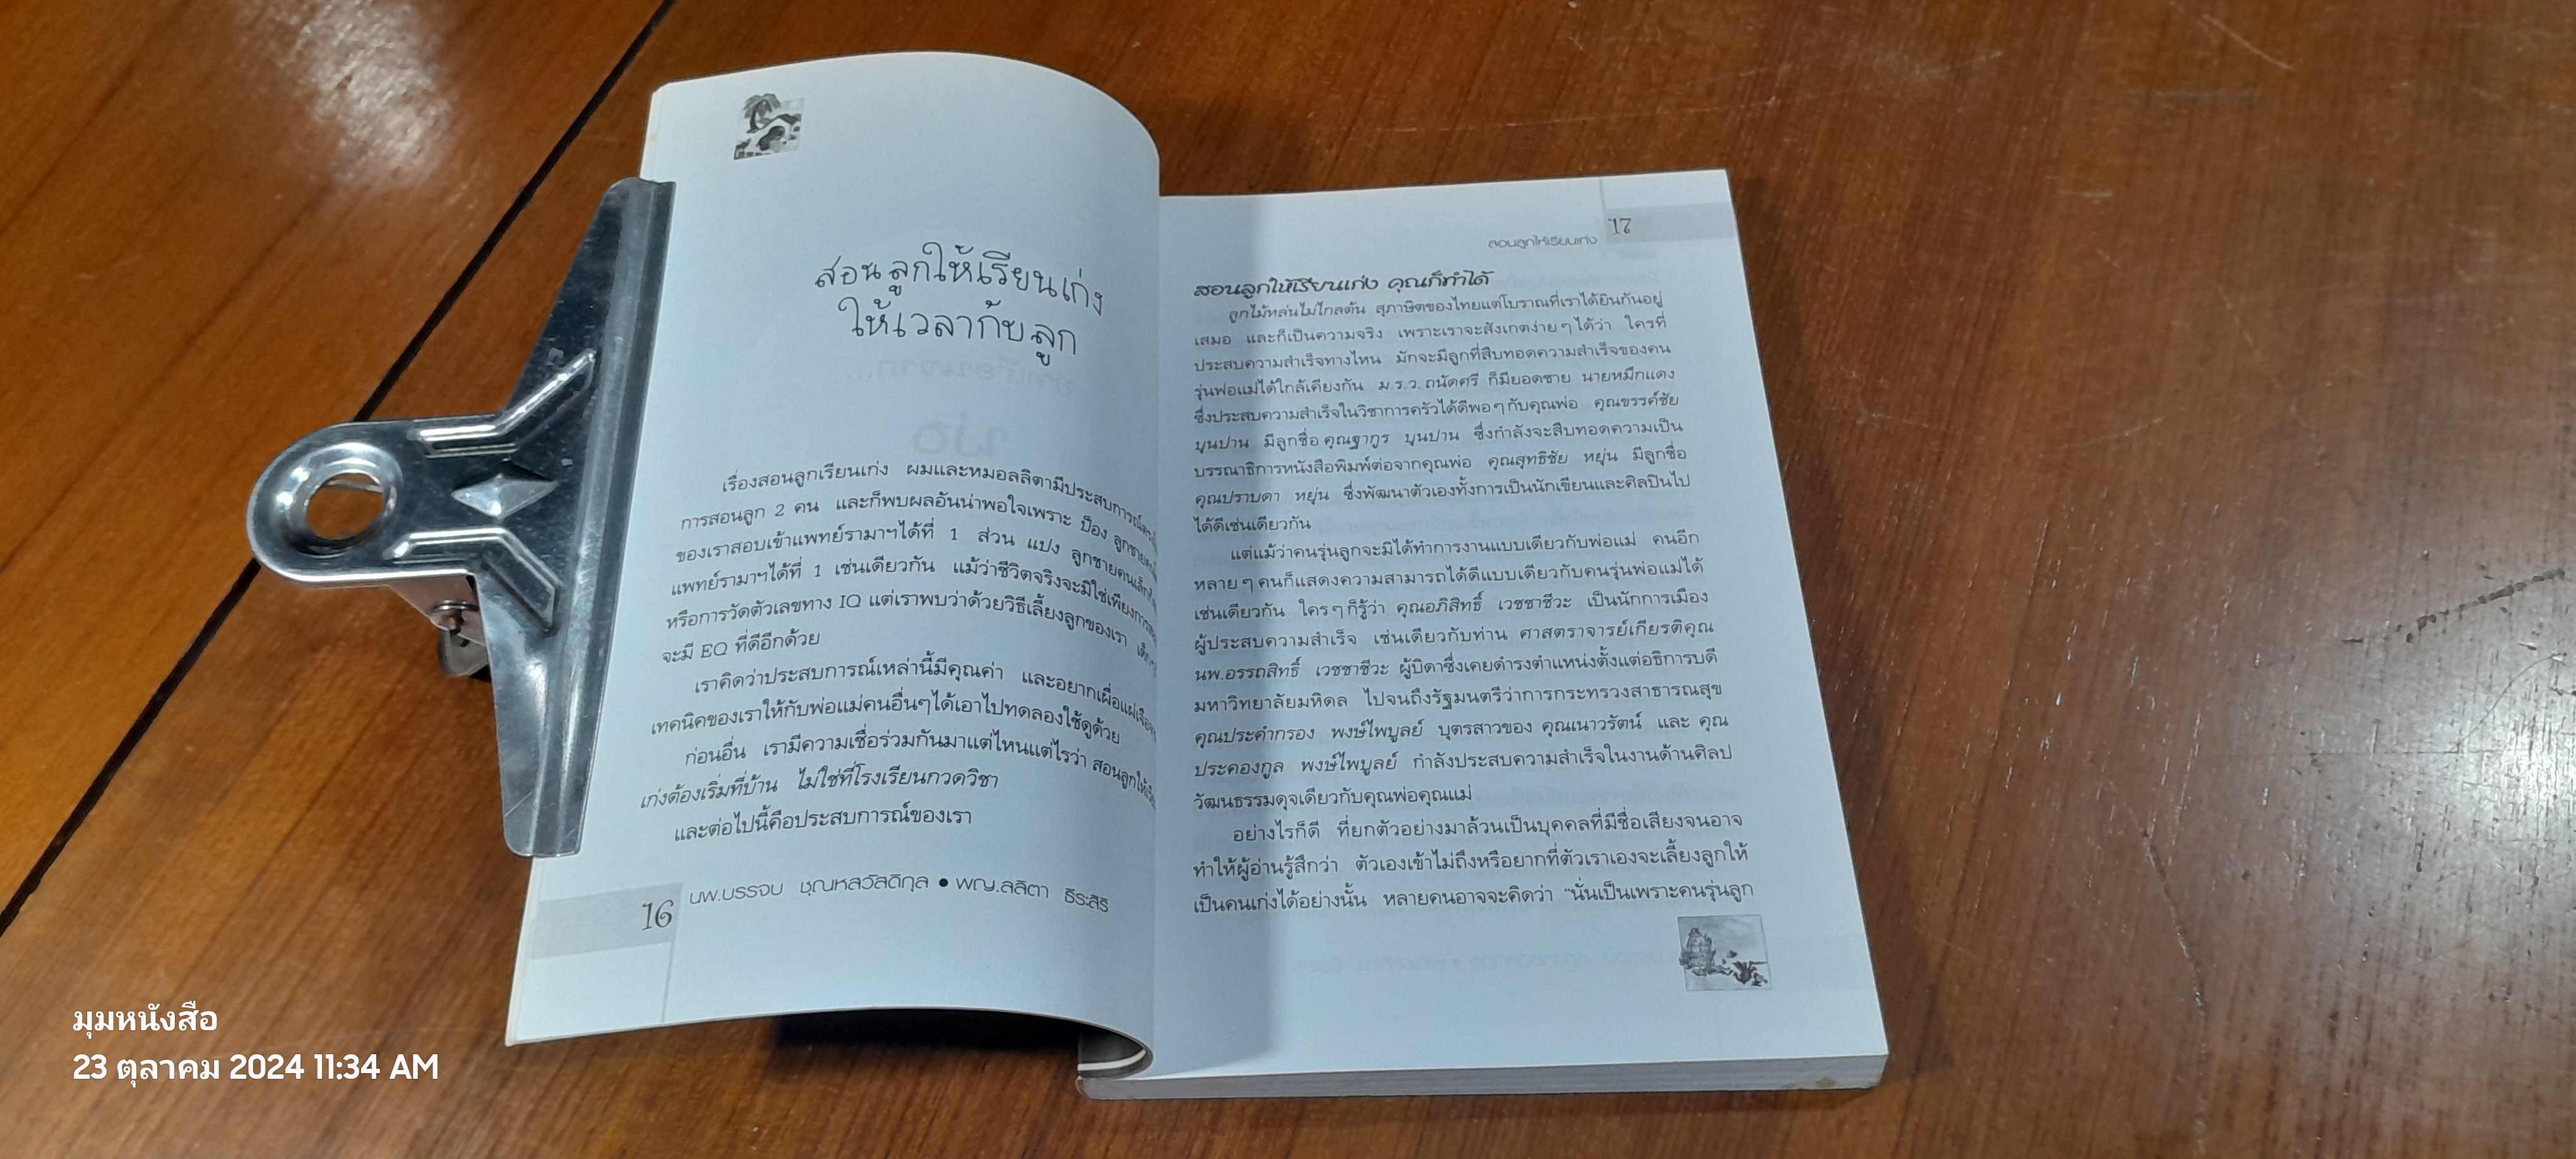 สอนลูกให้เรียนเก่ง
ให้เวลากับลูก
เรื่องสอนลูกเรียนเก่ง ผมและหมอลลิตามีประสบการณ์ตรงใน
การสอนลูก 2 คน และก็พบผลอันน่าพอใจเพราะ ป๊อง ลูกชาย
ของเราสอบเข้าแพทย์รามาฯได้ที่ 1 ส่วน แปง ลูกชายคนเล็ก
แพทย์รามาฯได้ที่ 1 เช่นเดียวกัน แม้ว่าชีวิตจริงจะมิใช่เพียงการ
หรือการวัดตัวเลขทาง IQ แต่เราพบว่าด้วยวิธีเลี้ยงลูกของเรา
จะมี EQ ที่ดีอีกด้วย
เราคิดว่าประสบการณ์เหล่านี้มีคุณค่า และอยากเผื่อแผ่
เทคนิคของเราให้กับพ่อแม่คนอื่นๆได้เอาไปทดลองใช้ดูด้วย
ก่อนอื่น เรามีความเชื่อร่วมกันมาแต่ไหนแต่ไรว่า สอนลูกให้เรียน
เก่งต้องเริ่มที่บ้าน ไม่ใช่ที่โรงเรียนกวดวิชา
และต่อไปนี้คือประสบการณ์ของเรา
16 นพ.บรรจบ ชุณหสวัสดิกุล ● พญ.ลลิตา ธีระสิริ
17
สอนลูกให้เรียนเก่ง
สอนลูกให้เรียนเก่ง คุณก็ทำได้
ลูกไม้หล่นไม่ไกลต้น สุภาษิตของไทยแต่โบราณที่เราได้ยินกันอยู่
เสมอ และก็เป็นความจริง เพราะเราจะสังเกตง่าย ๆ ได้ว่า ใครที่
ประสบความสำเร็จทางไหน มักจะมีลูกที่สืบทอดความสำเร็จของคน
รุ่นพ่อแม่ได้ใกล้เคียงกัน ม.ร.ว. ถนัดศรี ก็มียอดชาย นายหมึกแดง
ซึ่งประสบความสำเร็จในวิชาการครัวได้ดีพอ ๆ กับคุณพ่อ คุณขรรค์ชัย
บุนปาน มีลูกชื่อ คุณฐากูร บุนปาน ซึ่งกำลังจะสืบทอดความเป็น
บรรณาธิการหนังสือพิมพ์ต่อจากคุณพ่อ คุณสุทธิชัย หยุ่น มีลูกชื่อ
คุณปราบดา หยุ่น ซึ่งพัฒนาตัวเองทั้งการเป็นนักเขียนและศิลปินไป
ได้ดีเช่นเดียวกัน
แต่แม้ว่าคนรุ่นลูกจะมิได้ทำการงานแบบเดียวกับพ่อแม่ คนอีก
หลาย ๆ คนก็แสดงความสามารถได้ดีแบบเดียวกับคนรุ่นพ่อแม่ได้
เช่นเดียวกัน ใคร ๆ ก็รู้ว่า คุณอภิสิทธิ์ เวชชาชีวะ เป็นนักการเมือง
ผู้ประสบความสำเร็จ เช่นเดียวกับท่าน ศาสตราจารย์เกียรติคุณ
นพ.อรรถสิทธิ์ เวชชาชีวะ ผู้บิดาซึ่งเคยดำรงตำแหน่งตั้งแต่อธิการบดี
มหาวิทยาลัยมหิดล ไปจนถึงรัฐมนตรีว่าการกระทรวงสาธารณสุข
คุณประคำกรอง พงษ์ไพบูลย์ บุตรสาวของ คุณเนาวรัตน์ และ คุณ
ประคองกูล พงษ์ไพบูลย์ กำลังประสบความสำเร็จในงานด้านศิลป
วัฒนธรรมดุจเดียวกับคุณพ่อคุณแม่
อย่างไรก็ดี ที่ยกตัวอย่างมาล้วนเป็นบุคคลที่มีชื่อเสียงจนอาจ
ทำให้ผู้อ่านรู้สึกว่า ตัวเองเข้าไม่ถึงหรือยากที่ตัวเราเองจะเลี้ยงลูกให้
เป็นคนเก่งได้อย่างนั้น หลายคนอาจจะคิดว่า “นั่นเป็นเพราะคนรุ่นลูก
มุมหนังสือ
23 ตุลาคม 2024 11:34 AM